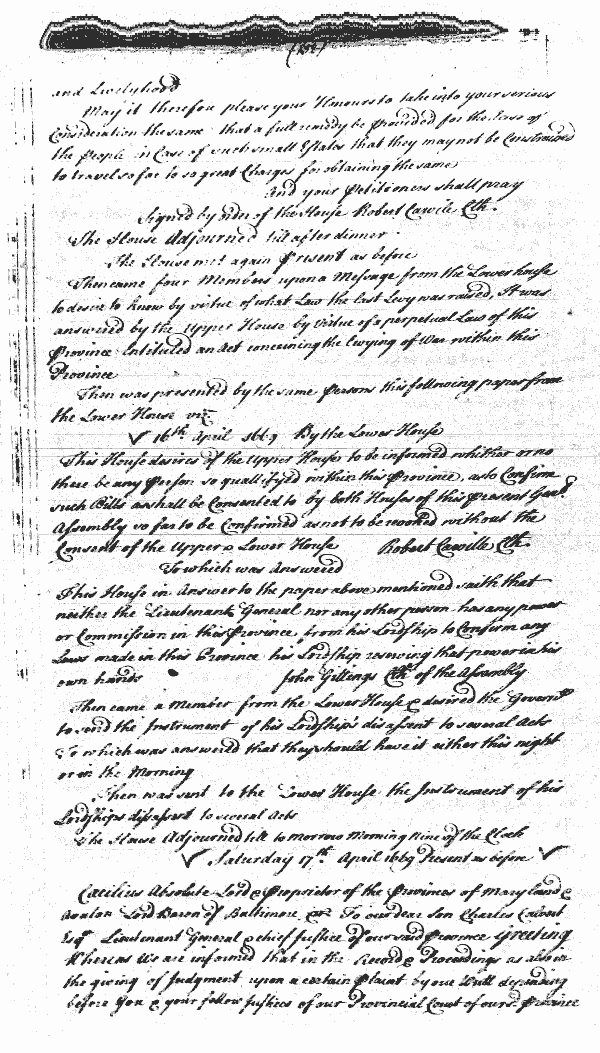 and Livelyhood
May it therefore please your Honours to take into your serious
Consideration the same that a full remedy be Provided for the Ease of
the People in Case of such small Estates that they may not be Constrained
to travel so far to so great Charges for obtaining the same
And your Petitioners shall pray
Signed by ordr of the House Robert Carvile Clk.
The House Adjourned till after dinner
The House met again Present as before
Then came four Members upon a Message from the Lower house
to desire to know by virtue of what Law the last Levy was raised, It was
answered by the Upper House by virtue of a perpetual Law of this
Province Intituled an Act concerning the Levying of War within this
Province
Then was presented by the same Persons this following paper from
the Lower House viz
16th April 1669 By the Lower House
This House desires of the Upper House to be informed whither or no
there be any Person so qualifyed within this Province, as to Confirm
such Bills as shall be Consented to by both Houses of this Present Genl.
Assembly so far to be Confirmed as not to be revoked without the
Consent of the Upper & Lower House Robert Carvile Clk.
To which was Answered
This House in Answer to the paper above mentioned saith that
neither the Lieutenant General nor any other person has any power
or Commission in this Province from his Lordship to Confirm any
Laws made in this Province his Lordship reserving that power in his
own hands John Gittings Clk of the Assembly
Then came a Member from the Lower House & desired the Governr
to send the Instrument of his Lordship's disassent to several Acts
To which was answered that they should have it either this night
or in the Morning
Then was sent to the Lower House the Instrument of his
Lordships disassent to several Acts
The House Adjourned till to morrow Morning Nine of the Clock
Saturday 17th April 1669 Present as before
Cæcilius Absolute Lord & Proprietor of the Provinces of Maryland &
Avalon Lord Baron of Baltimore &c To our dear Son Charles Calvert
Esqr Lieutenant General & chief Justice of our said Province Greeting
Whereas We are informed that in the Record & Proceedings as also in
the giving of Judgment upon a certain Plaint by our Writt depending
before You & your fellow Justices of our Provincial Court of our sd. Province